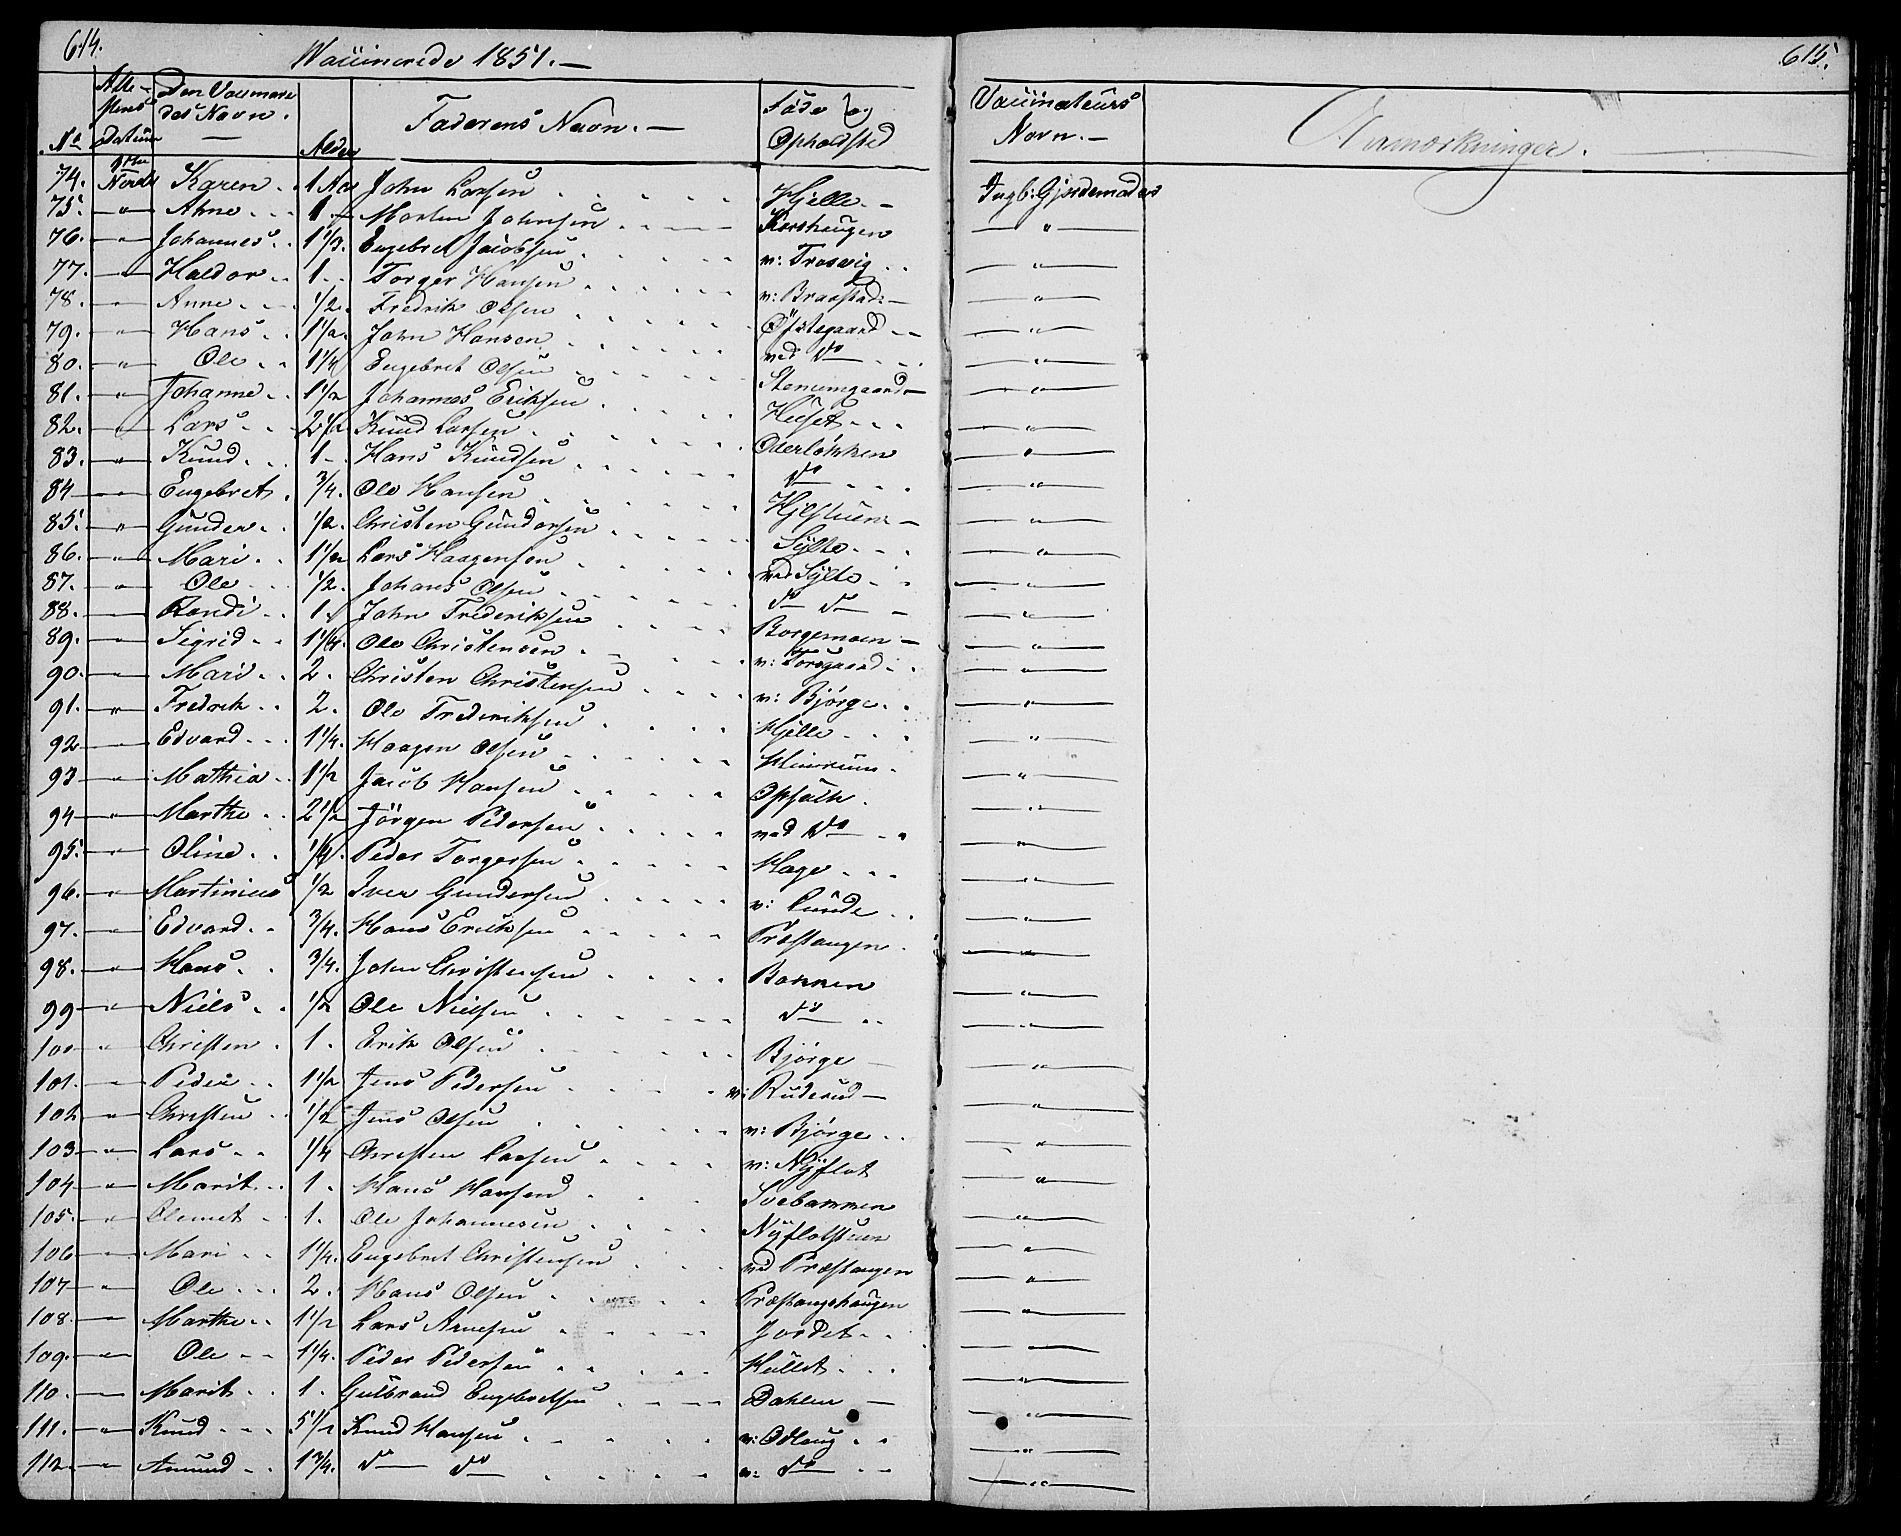 614.
Vaccinerede 1851. —
615.
No
Attestens datum
Den Vaccineredes Navn.
Alder
Faderens Navn. —
Føde og Opholdsted
Vaccinateurs Navn. —
Anmærkninger.
74. Karen 1 Aar John Larsen Hjelle Ingb: Gjordemoder
75. — " — Ahne 1 — Morten Johnsen Korshaugen — " —
76. — " — Johannes 1 1/3 Engebret Jacobsen v: Trosvig — " —
77. — " — Haldor 1 Torger Hansen v: Braastad — " —
78. — " — Anne 1/2 Fredrik Olsen Øfstegaard — " —
79. — " — Hans 1 1/2 John Hansen ved do — " —
80. — " — Ole 1 1/4 Engebret Olsen Stenumgaard — " —
81. — " — Johanne 1 1/2 Johannes Eriksen Huset — " —
82. — " — Lars 2 1/2 Knud Larsen Oterløkken — " —
83. — " — Knud 1 — Hans Knudsen do — " —
84 — " — Engebret 3/4 Ole Hansen Hjelstuen — " —
85. — " — Gunder 1/2 Christen Gundersen Sylte — " —
86. — " — Mari 1 1/2 Lars Haagensen ved Sylte — " —
87. — " — Ole 1/2 Johans Olsen do do — " —
88. — " — Randi 1 John Frederiksen Borgemoen — " —
89. — " — Sigrid 1 1/4 Ole Christensen v: Forsgaard — " —
90. — " — Mari 2 Christen Christensen v: Bjørge — " —
91. — " — Fredrik 2 Ole Frederiksen Hjelle — " —
92 — " — Edvard 1 1/4 Haagen Olsen — " —
93 — " — Mathia 1 1/2 Jacob Hansen Opsath — " —
94 — " — Marthe 2 1/2 Jörgen Pedersen ved do — " —
95. — " — Oline 1/4 Peder Torgersen Hage — " —
96. — " — Martinius 1/2 Iver Gundersen v: Lunde — " —
97. — " — Edvard 3/4 Hans Eriksen Præstangen — " —
98. — " — Hans 3/4 John Christensen Bakken — " —
99 — " — Niels 1/2 Ole Nielsen do — " —
100 — " — Christen 1 Erik Olsen Bjørge — " —
101. — " — Peder 1 1/2 Jens Pedersen v: Ruderud — " —
102 — " — Christen 1/2 Jens Olsen v: Bjørge — " —
103 — " — Lars 1/4 Christen Larsen v: Nyflot — " —
104 — " — Marit 1 Hans Hansen Svebakken — " —
105. — " — Olemet 1 Ole Johannesen Nyflotstuen — " —
106 — " — Mari 1 1/4 Engebret Christensen ved Præstangen — " —
107 — " — Ole 2 Hans Olsen Præstangshaugen — " —
108. — " — Marthe 1 1/2 Lars Arnesen Jordet — " —
109. — " — Ole 1 1/4 Peder Pedersen Hullet — " —
110. — " — Marit 1 Gulbrand Engebretsen Dahlen — — " —
111. — " — Knud 5 1/2 Knud Hansen v: Odlaug — " —
112. — " — Amund 1 3/4 do do v: do — " —